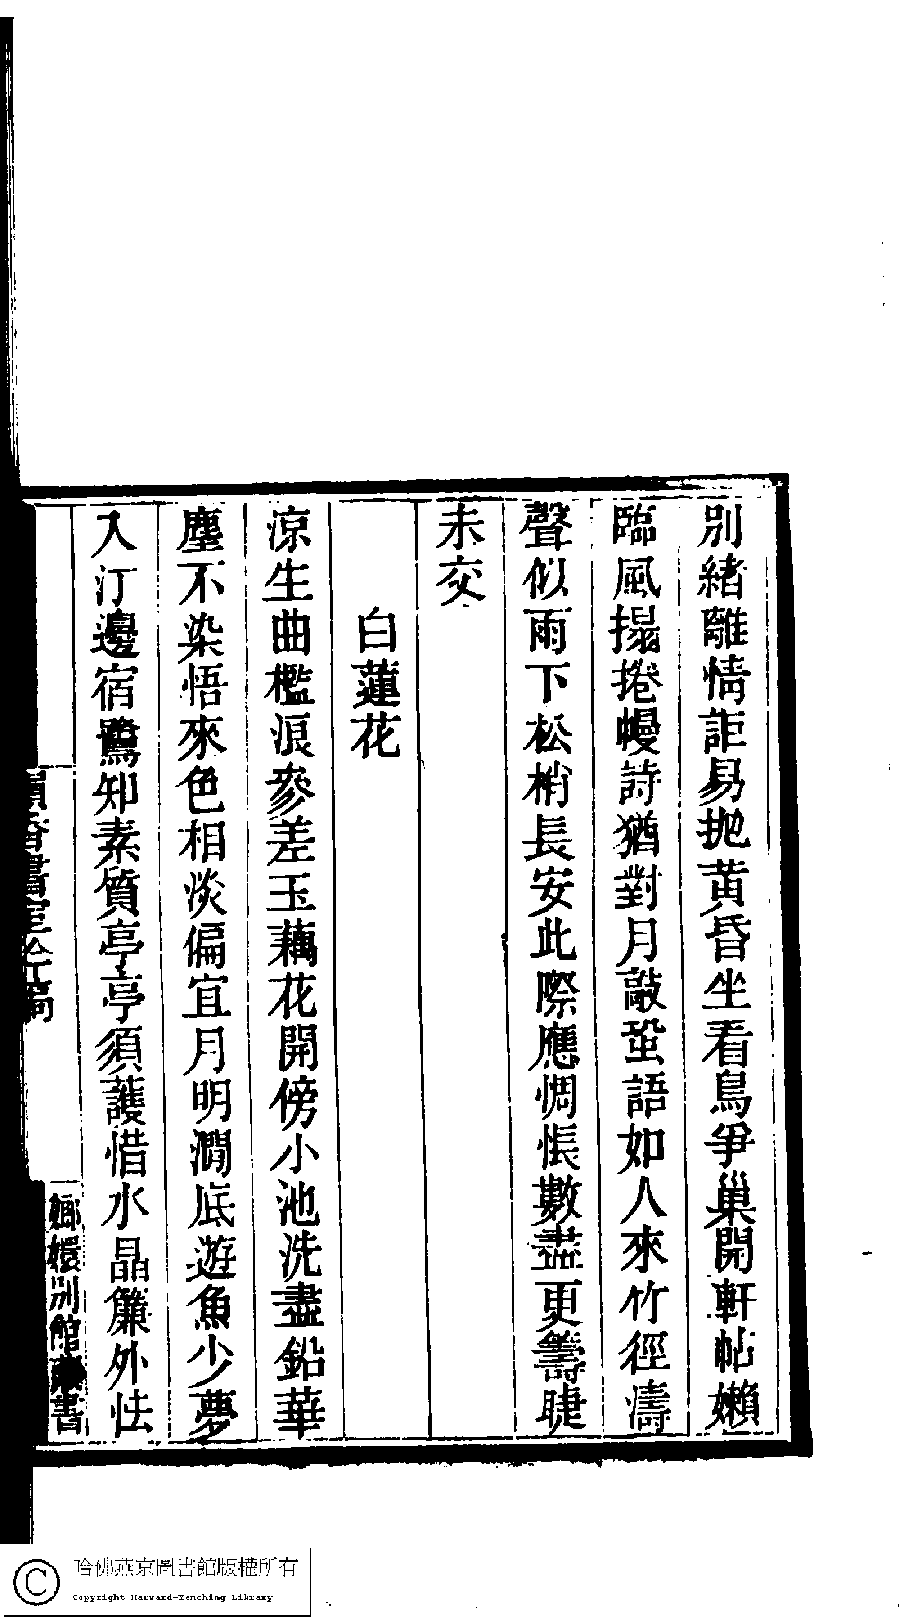 別緒離情詎易拋黃昏坐看鳥爭巢開軒帖嬾
臨風搨捲幔詩猶對月敲蛩語如人來竹徑濤
聲似雨下松梢長安此際應惆悵數盡更籌睫
未交
白蓮花
涼生曲檻浪參差玉藕花開傍小池洗盡鉛華
塵不染悟來色相淡偏宜月明澗底遊魚少夢
入汀邊宿鷺知素質亭亭須護惜水晶簾外怯
韻香書室吟稿
嫏嬛別館藏書
哈佛燕京圖書館版權所有
Copyright Harvard-Yenching Library